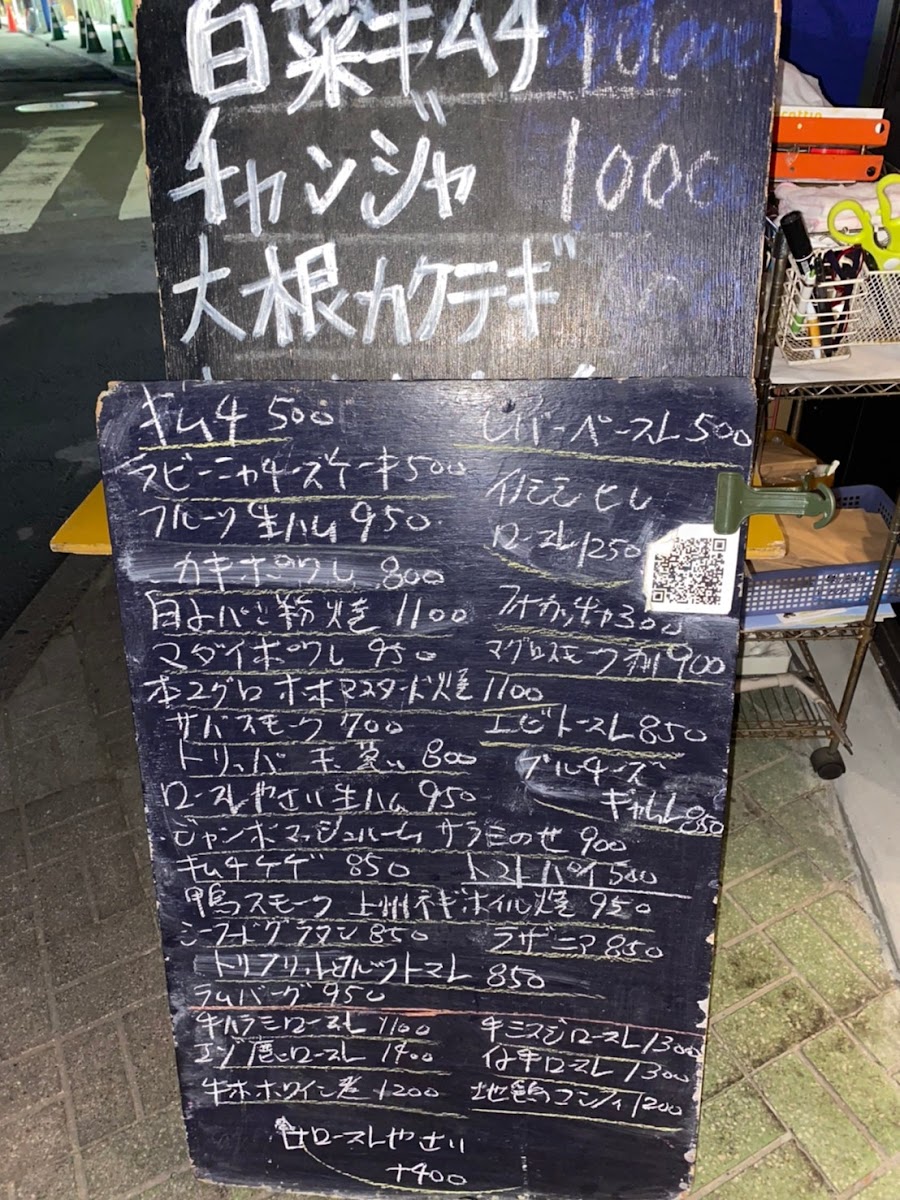 白菜キムチ 1000
チャンジャ 1000
大根カクテギ
キムチ 500
レバーペースト 500
ラビーニャチーズケーキ 500
イノシシ ヒレ
ロースト 1250
フルーツ生ハム 950
カキポワレ 800
白よパン粉焼 1100
フォカッチャ 300
マダイポワレ 950
マグロスモーク 900
本マグロ ホホマスタード焼 1100
サバスモーク 700
エビトースト 850
トリッパ 煮 800
ブルーチーズ
850
ローストやさい生ハム 950
ジャンボマッシュルーム サラミのせ 900
キムチチゲ 850
トマトパイ 500
鴨スモーク 上州ネギホイル焼 950
シーフードグラタン 850
ラザニア 850
トマト 850
ラムバーグ 950
牛ハラミロースト 1100
牛ミスジロースト 1300
エゾ鹿ロースト 1400
仔羊ロースト 1300
牛ホホワイン煮 1200
地鶏コンフィ 1200
ローストやさい
+400